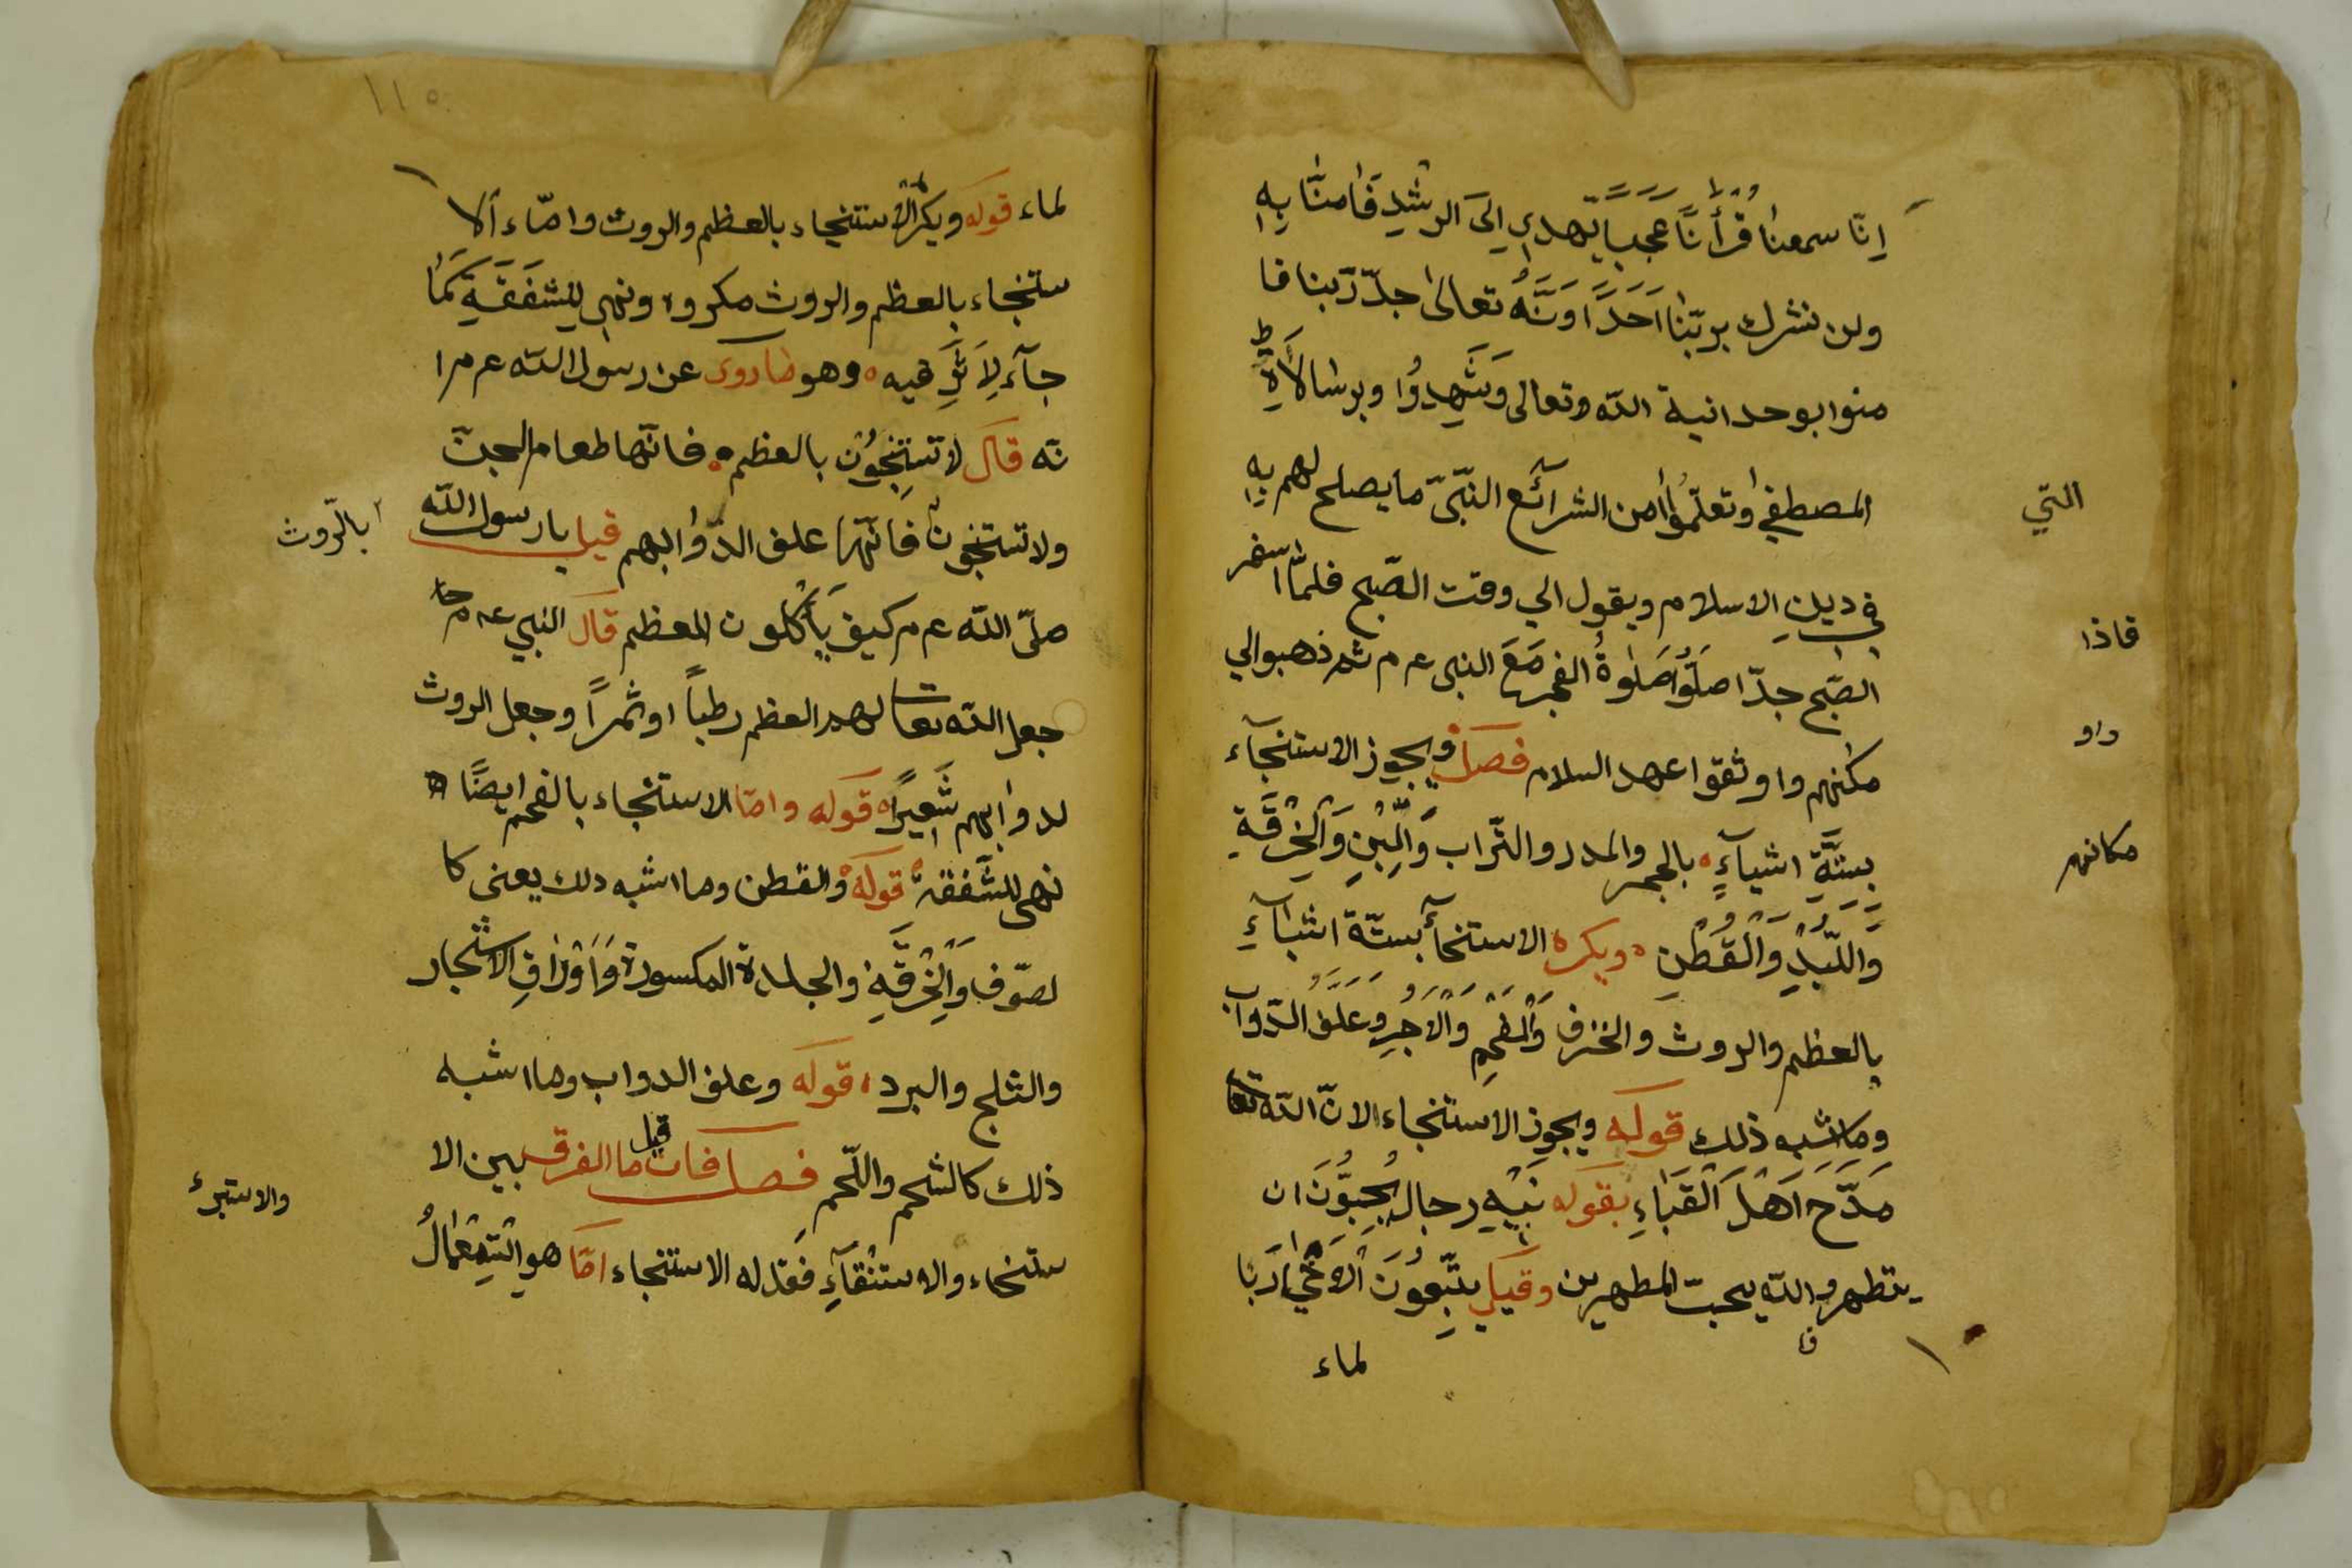 اِنّا سمعنا قُرْأٰنًا عَجَبًا يّهدي اِلىَ الرشْدِ فَاٰمنّا بِهِ
ولن نشرك بربّنا اَحَدًا وَنَّهُ تعالىٰ جدّ رّبنا فا
منوا بوحدانية اللّه وتعالى وَشَهِدُوا وبرسالاَةِ
المصطفىٰ وتعلّمُوا من الشرآئع النبّىّ ما يصلح لهم بِهِ
التي
في دينِ الاسلام ويقول الي وقت الصّبح فلمّا اسفر
الصّبح جدّا صَلَّوْا صَلٰوةُ الفجر مَعَ النبى عم ثم ذهبوا الي
فاذا
مكنهم واوثقوا عهد السلام فصل ويجوز الاستنجآء
واو
بِستَّةِ اشيآءٍ بالحجر والمدر والتّراب وَالّلبْنِ وَالْخِرْقَةِ
مكانهم
وَاللّبْدِ وَالْقُطْنِ ويكره الاستنجآ بستّة اشيآءِ
بالعظم والروث والخزف وَالْفحْمِ وَالْاَجُرِ وَعَلَفُ الدّوآب
وما شبه ذلك قوله ويجوز الاستنجاء الانّ اللّه تعا
مَدَّحَ اَهْلَ الْقَبَاءِ بقوله فيهِ رجال يُحِبُّونَ ان
يتطهروا واللّه يحبّ المطهرين وقيل يتّبِعُونَ الْاَحْجَارَ با
لماء
١١٥
لماء قوله ويكره الاستنجاء بالعظم والروث وامّاء الا
ستنجاء بالعظم والروث مكروه ونهي للشفَقَةِ كَمَا
جآءَ لِاَثَرِ فيه وهو ما روى عن رسول اللّه عم ا
نّه قال لا تستنجُوْن بالعظم فانّها طعام الجنّ
ولا تستنجون فانّها علف الدّوابهم قيل يا رسول اللّه
بالّروث
صلّى اللّه عم كيف يَأكلون العظم قال النبي عم
جعل اللّه تعا لهم العظم رطباً اوثمراً وجعل الروث
لدوابهم شَعِيرًا قوله وامّا الاستنجاء بالفحم ايضًا
نهى للشَّفقة قوله والقطن وما اشبه دلك يعنى كا
لصّوف وَالْخِرْقَةِ والجلدة المكسورة وَاَوْرَاقِ الاشجار
والثلج والبرد قوله وعلف الدواب وما اشبه
ذلك كالشحم واللّحم فصل فان قيل ما الفرق بين الا
والاستبرء
ستنجاء والاستنقآءِ فَقل له الاستنجاء امّا هو اسْتِعْمَالُ